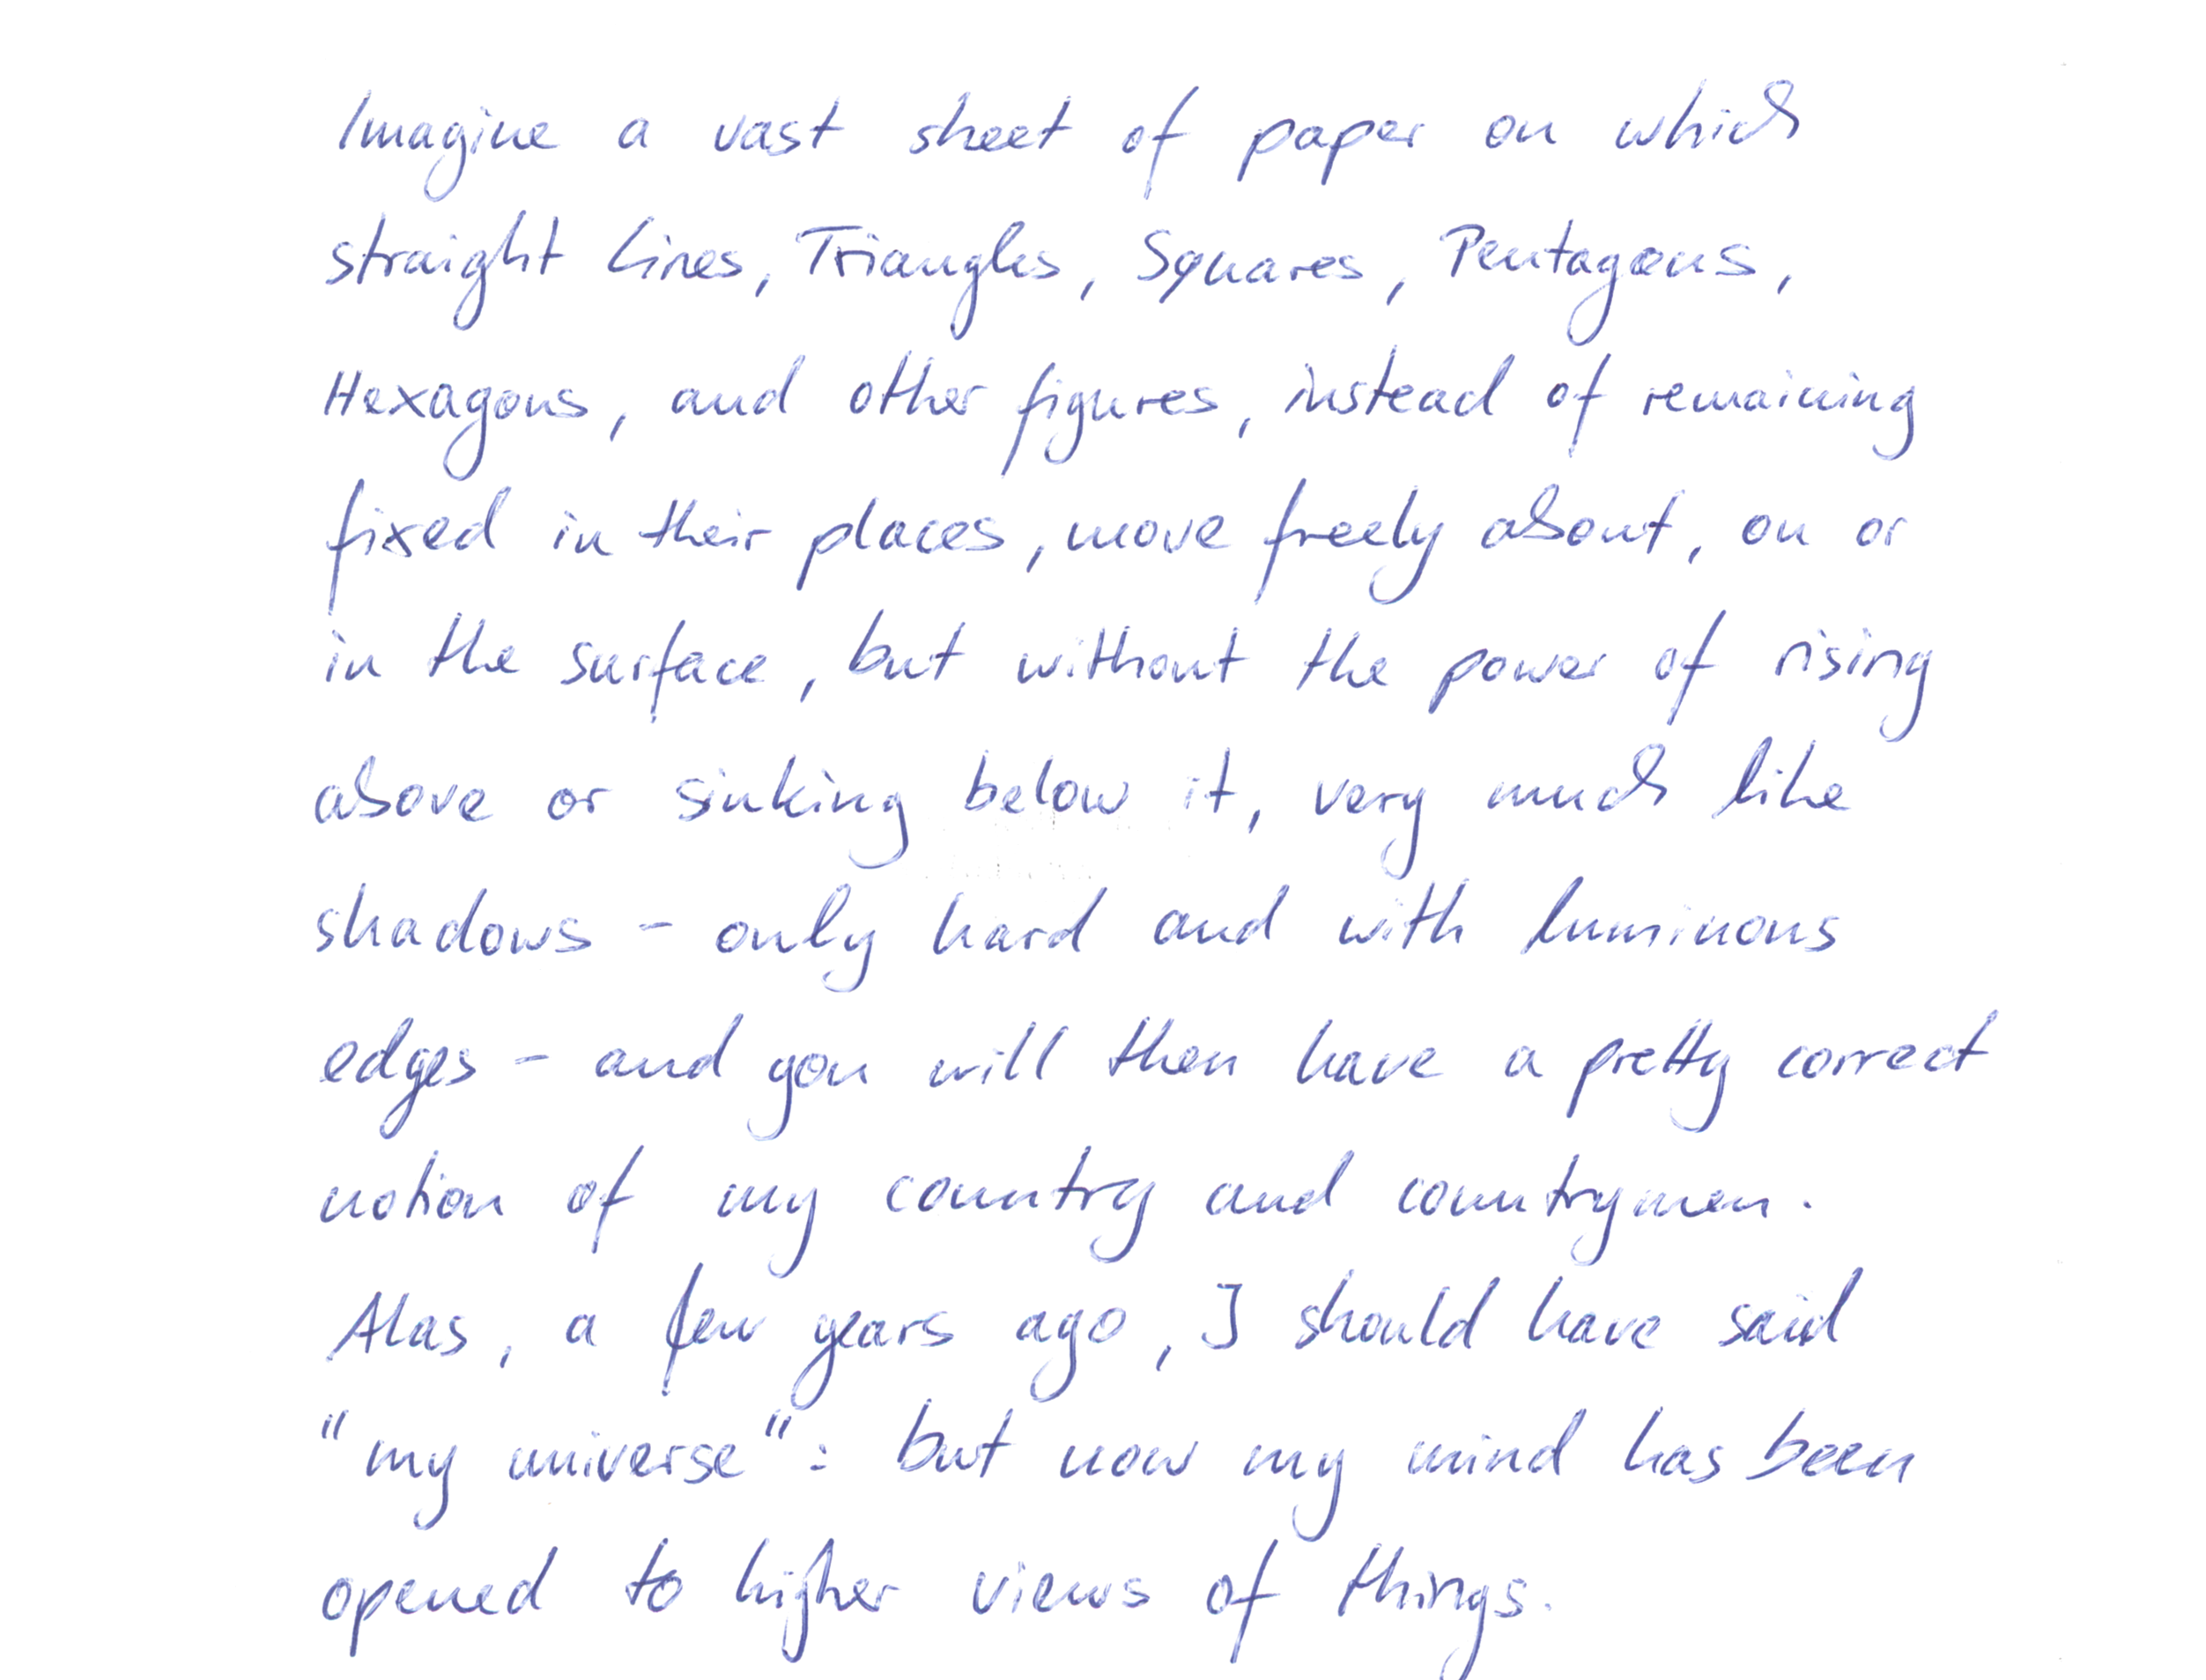 Imagine a vast sheet of paper on which
straight Lines, Triangles, Squares, Pentagons,
Hexagons, and other figures, instead of remaining
fixed in their places, move freely about, on or
in the surface, but without the power of rising
above or sinking below it, very much like
shadows - only hard and with luminous
edges - and you will then have a pretty correct
notion of my country and countrymen.
Alas, a few years ago, I should have said
"my universe": but now my mind has been
opened to higher views of things.